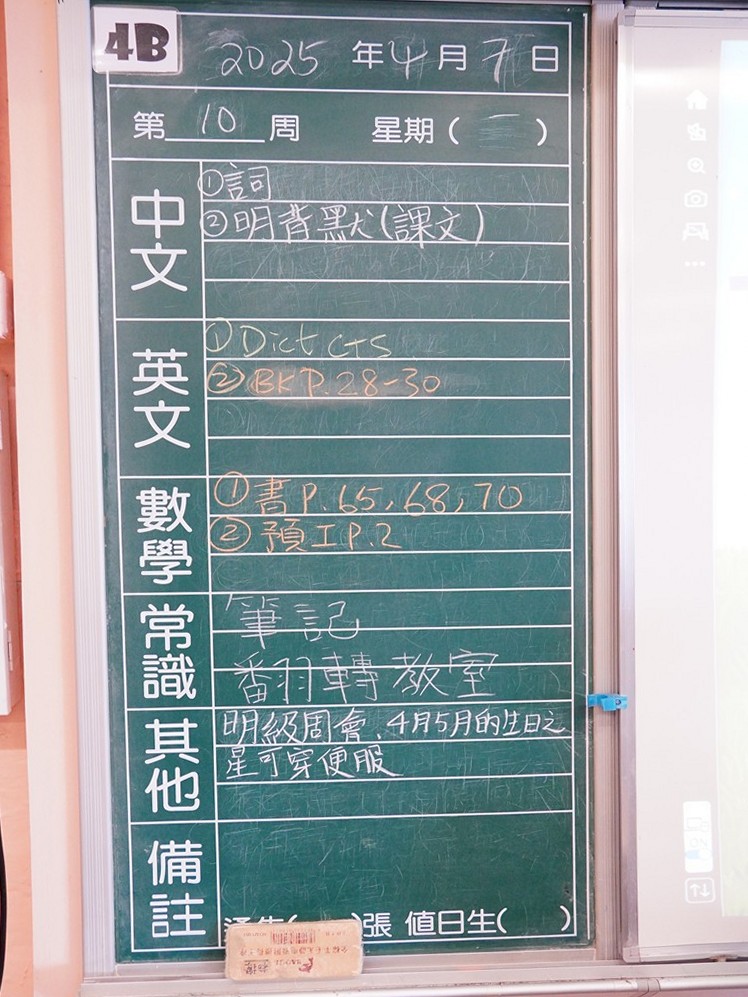 4B
2025 年 4 月 7 日
第 10 周 星期 ( 一 )
中文
①詞
②明背默(課文)
英文
① Dict cts
② BK P.28-30
數學
①書 P.65, 68, 70
②預工P.2
常識
筆記
翻轉教室
其他
明級周會、4月5月的生日之
星可穿便服
備註
通告( )張 值日生( )